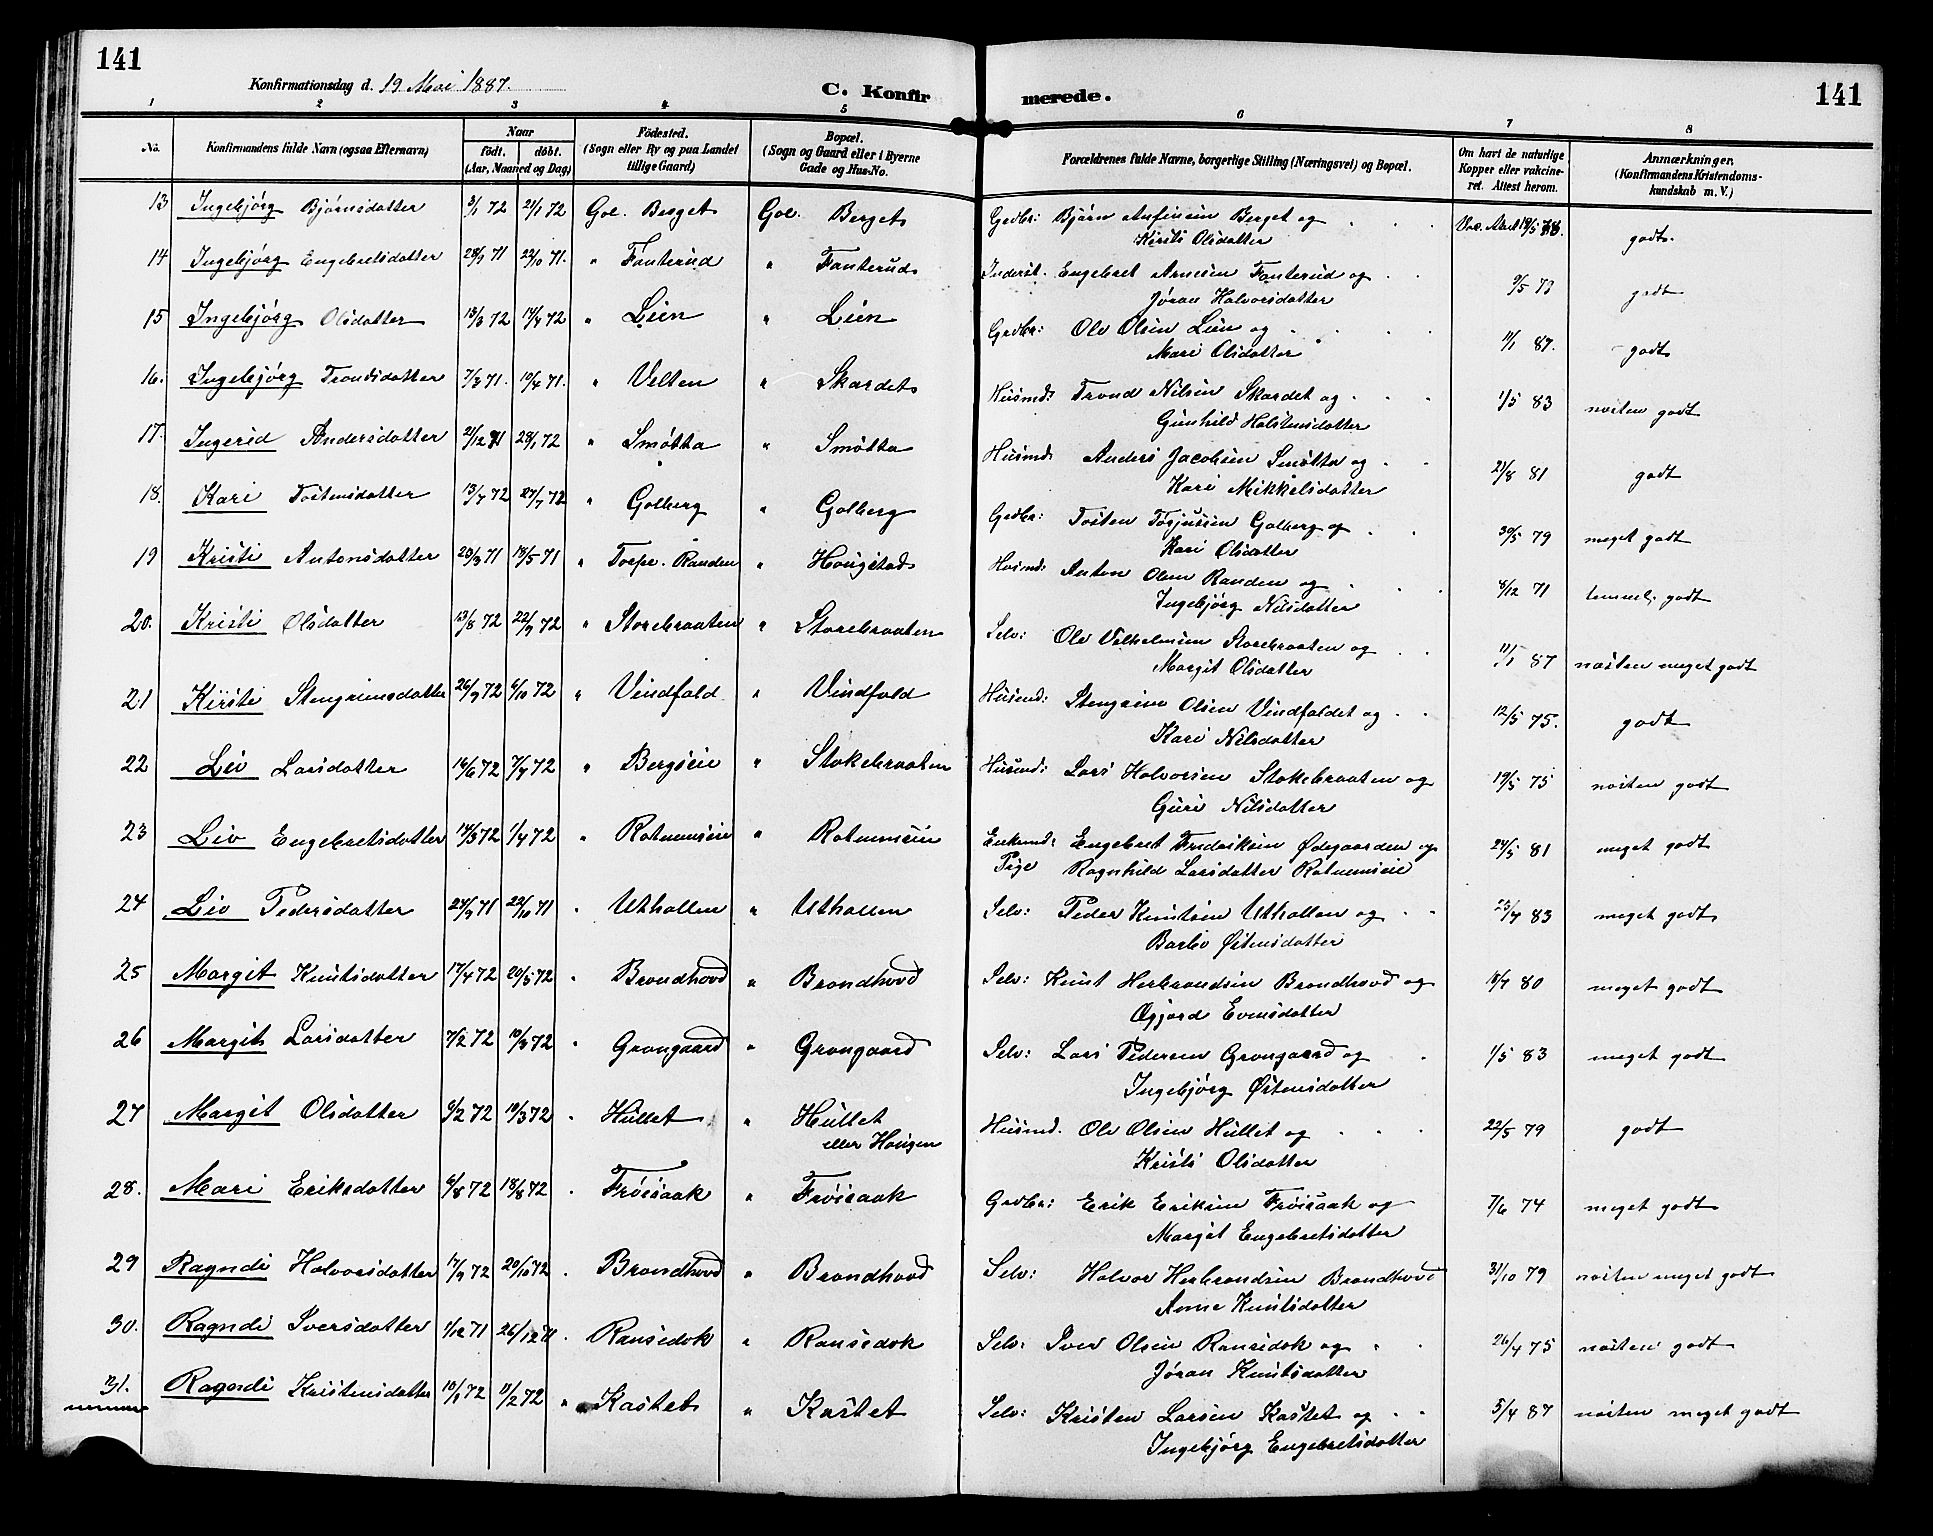 141
Konfirmationsdag d. 19 Mai 1887.
C. Konfirmerede.
141
1 2 3 4 5 6 7 8
No. Konfirmandens fulde Navn (ogsaa Efternavn) Naar födt. döbt. (Aar, Maaned og Dag) Födested. (Sogn eller By og paa Landet tillige Gaard) Bopæl. (Sogn og Gaard eller i Byerne Gade og Hus-No. Forældrenes fulde Navne, borgerlige Stilling (Næringsvei) og Bopæl. Om havt de naturlige Kopper eller vakcineret. Attest herom. Anmærkninger. (Konfirmandens Kristendomskundskab m. V.)
13 Ingebjörg Bjørnsdatter 3/1 72 21/1 72 Gol. Berget Gol. Berget Grdbr: Bjørn Anfinsen Berget og godt.
Kirsti Olsdatter
14 Ingebjörg Engebretsdatter 22/10 71. " Fanterud " Fanterud Inderst. Engebret Arnesen Fanterud og godt
Jöran Halvorsdatter
15 Ingebjörg Olsdatter 13/3 72 14/4 72 " Lien " Lien Grdbr: Ole Olsen Lien og 11/1 87. godt
Mari Olsdatter
16. Ingebjörg Trondsdatter 7/3 71. 10/4 71. " Velten " Skardet Husmd: Trond Nilsen Skardet og 1/5 83 næsten godt
Gunhild Halstensdatter
17. Ingerid Andersdatter 21/12 71 28/1 72 " Smøtta " Smøtta Husmd: Anders Jacobsen Smøtta og 21/8 81 godt
Kari Mikkelsdatter
18. Kari Tostensdatter 27/7 72 " Golberg " Golberg Grdbr: Tosten Torjusen Golberg og 30/5 79 meget godt
Kari Olsdatter
19 Kristi Antonsdatter 23/3 71 18/5 71 " Torpe. Randen " Hougstad Husmd: Anton Olsen Randen og 8/12 71 temmel. godt
Ingebjörg Nilsdatter
20. Kristi Olsdatter 13/8 72 22/9 72 " Storebraaten " Storebraaten Selv: Ole Vilhelmsen Storebraaten og 11/1 87 næsten meget godt
Margit Olsdatter
21 Kirsti Stengrimsdatter 26/9 72 6/10 72 " Vindfald " Vindfald Husmd: Stengrim Olsen Vindfaldet og 12/5 75. godt
Kari Nilsdatter
22 Liv Larsdatter 16/6 72 7/7 72 " Bergseie " Stokebraaten Husmd: Lars Halvorsen Stokebraaten og 19/5 75 næsten godt
Guri Nilsdatter
23 Liv Engebretsdatter 14/3 72 1/4 72 " Rotnemseie " Rotnemseie Enkemd: Engebret Fredriksen Ødegaarden og 24/5 81 meget godt
Pige Ragnhild Larsdatter Rotnemseie
24 Liv Pedersdatter 24/9 71 22/10 71 " Uthallen " Uthallen Selv: Peder Knutsen Uthallen og 83 meget godt
Barbo Østensdatter
25 Margit Knutsdatter 17/4 72 20/5 72 " Brandhovd " Brandhovd Selv: Knut Herbrandsen Brandhovd og 80 meget godt
Øgjørd Evensdatter
26 Margit Larsdatter 7/2 72 10/3 72 " Grongaard " Grongaard Selv: Lars Pedersen Grongaard og 1/5 83 meget godt
Ingebjörg Østensdatter
27 Margit Olsdatter 10/3 72 " Hullet " Hullet Husmd. Ole Olsen Hullet og 22/5 79 godt
eller Haugen Kristi Olsdatter
28. Mari Eriksdatter 18/8 72 " Frøisaak " Frøisaak Grdbr: Erik Eriksen Frøisaak og 7/6 74 meget godt
Margit Engebretsdatter
29 Ragndi Halvorsdatter 17/9 72 20/10 72 " Brandhovd " Brandhovd Selv: Halvor Herbrandsen Brandhovd 31/10 79 næsten meget godt
Anne Knutsdatter
30. Ragndi Iversdatter 1/12 71 26/12 71 " Ransedok " Ransedok Selv: Iver Olsen Ransedok og 26/4 75 næsten godt
Jöran Knutsdatter
31. Ragndi Kristensdatter 10/1 72 11/2 72 " Kastet " Kastet Selv: Kristen Larsen Kastet og 5/4 87 næsten meget godt
Ingebjörg Engebretsdatter